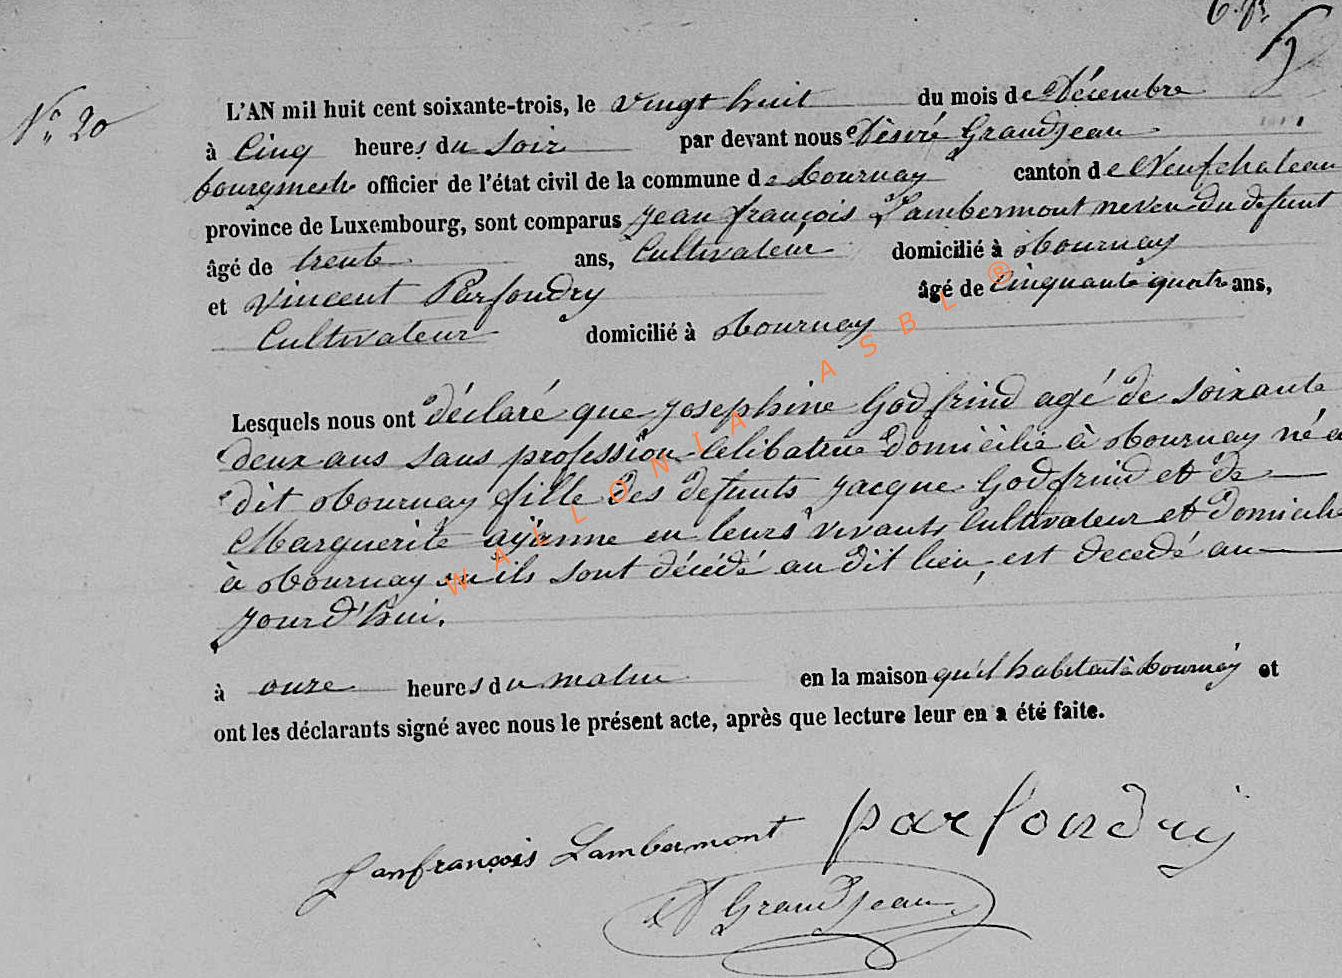 N° 20
L'AN mil huit cent soixante-trois, le vingt huit du mois de Décembre
à Cinq heures du Soir par devant nous Désiré Grandjean
bourgmestre officier de l'état civil de la commune de Tournay canton de Neufchateau
province de Luxembourg, sont comparus Jean françois Lambermont neveu du defunt
âgé de trente ans, Cultivateur domicilié à Tournay
et Vincent Parfondry âgé de Cinquante quatre ans,
Cultivateur domicilié à Tournay
Lesquels nous ont déclaré que Josephine Godfrind agé de soixante
deux ans sans profession Celibataire domicilié à Tournay né a
dit Tournay fille des defunts Jacque Godfrind et de
Marguerite en leurs vivants Cultivateur et domicilié
à Tournay ou ils sont décédé au dit lieu, est decedé au
jourd'hui.
à onze heures du matin en la maison qu'il habitait à Tournay et
ont les déclarants signé avec nous le présent acte, après que lecture leur en a été faite.
Janfrançois Lambermont parfondry
D Grandjean
WALLONIA ASBL ®